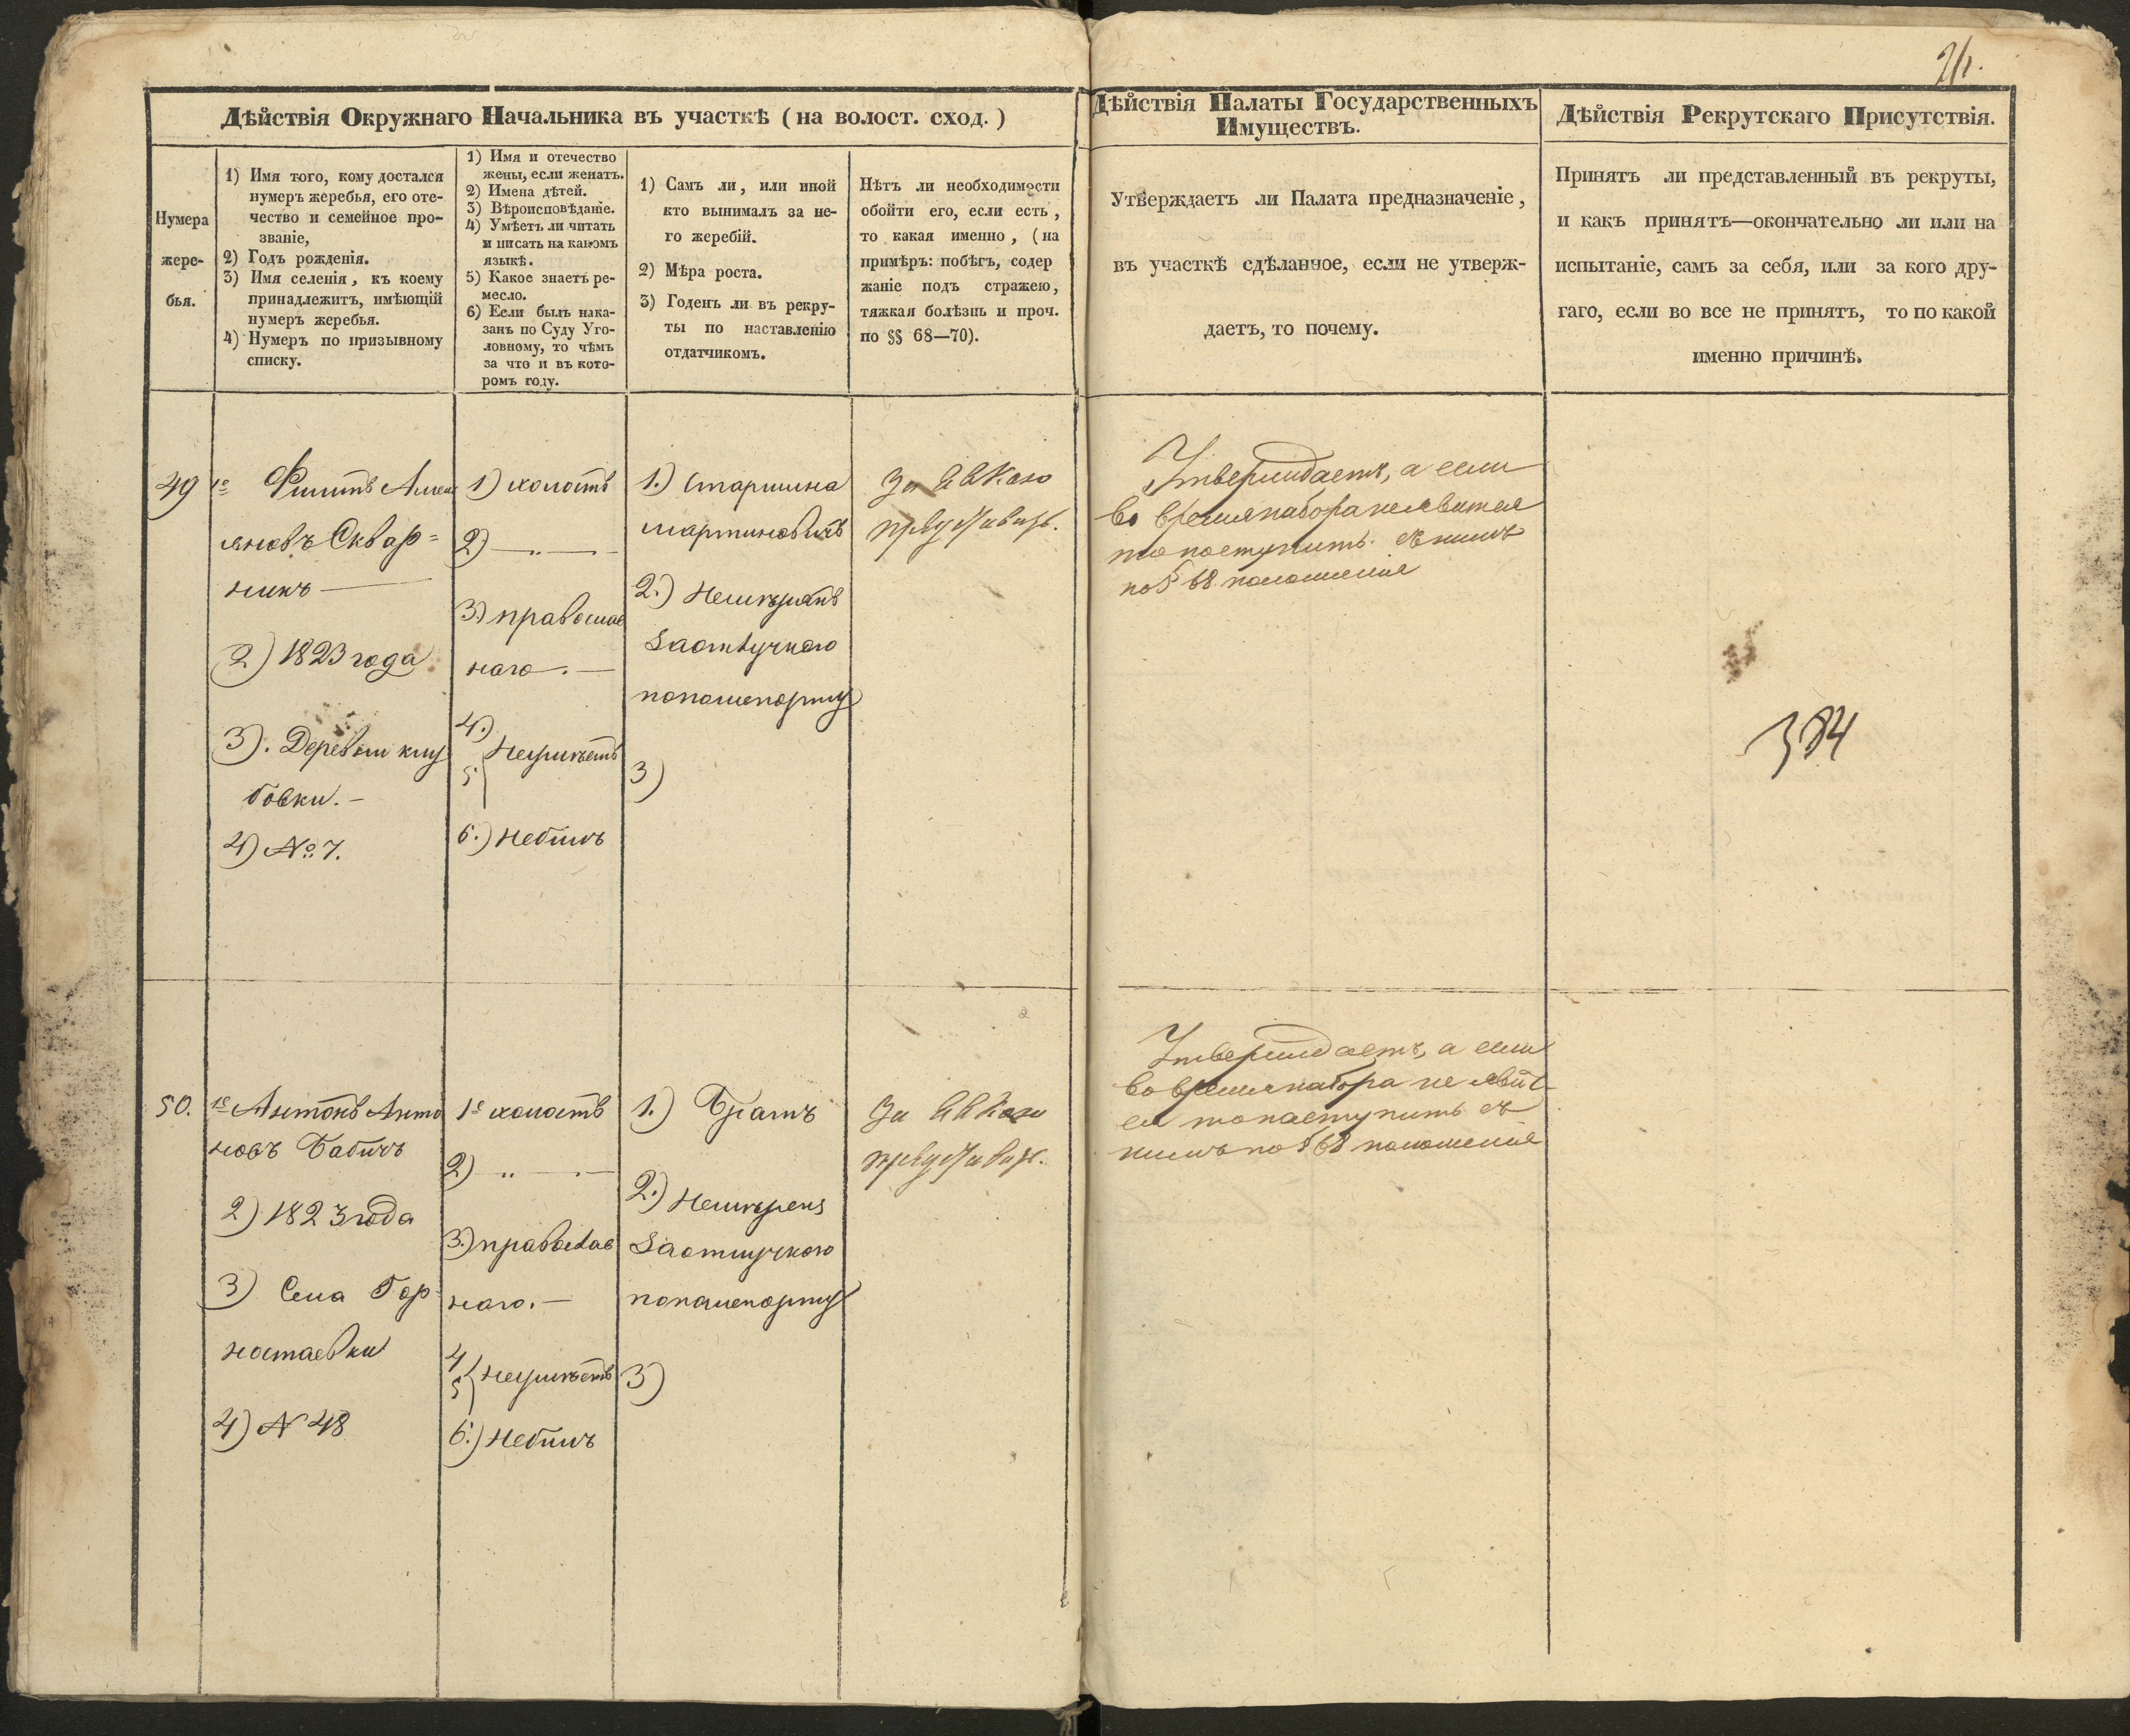 Дѣйствія Окружнаго Начальника въ участкѣ (на волост. сход.)
Нумера
жере-
бья.
1) Имя того, кому достался
нумеръ жеребья, его оте-
чество и семейное про-
званіе,
2) Годъ рожденія.
3) Имя селенія, къ коему
принадлежитъ, имѣющій
нумеръ жеребья.
4) Нумеръ по призывному
списку.
1) Имя и отечество
жены, если женатъ.
2) Имена дѣтей.
3) Вѣроисповѣданіе.
4) Умѣетъ ли читать
и писать на какомъ
языкѣ.
5) Какое знаетъ ре-
месло.
6) Если былъ нака-
занъ по Суду Уго-
ловному, то чѣмъ
за что и въ кото-
ромъ году.
1) Самъ ли, или иной
кто вынималъ за не-
го жеребій.
2) Мѣра роста.
3) Годенъ ли въ рекру-
ты по наставленію
отдатчикомъ.
Нѣтъ ли необходимости
обойти его, если есть,
то какая именно, (на
примѣръ: побѣгъ, содер
жаніе подъ стражею,
тяжкая болѣзнь и проч.
по §§ 68—70).
49
1е Филипъ
Сквар=
никъ —
2) 1823 года
3). Деревни клу
бовки. —
4) № 7.
1) холостъ
2) — „ —
3) православ
наго. —
4.)
5 Неумѣетъ
6.) Небылъ
1.) Старшина
мартиновичъ
2.) Немѣрянъ
За отлучкою
попашепорту
3)
За
50.
1е Антонъ Анто
новъ Бабичъ
2) 1823 года
3) Села Гор
ностаевки
4) N 48
1е холостъ
2) — „ —
3.) православ
наго. —
4
5 неумѣетъ
6.) Небылъ
1.) Братъ
2.) Немѣренъ
За отлучкою
попашепорту
3)
За
26.
Дѣйствія Палаты Государственныхъ
Имуществъ.
Утверждаетъ ли Палата предназначеніе,
въ участкѣ сдѣланное, если не утверж-
даетъ, то почему.
Дѣйствія Рекрутскаго Присутствія.
Принятъ ли представленный въ рекруты,
и какъ принятъ—окончательно ли или на
испытаніе, самъ за себя, или за кого дру-
гаго, если во все не принятъ, то по какой
именно причинѣ.
Утверждаетъ, а если
во время набора неявится
то поступить съ нимъ
по § 68 положенія
384
Утверждаетъ, а если
во время набора не явит
ся то поступить съ
нимъ по § 68 положенія